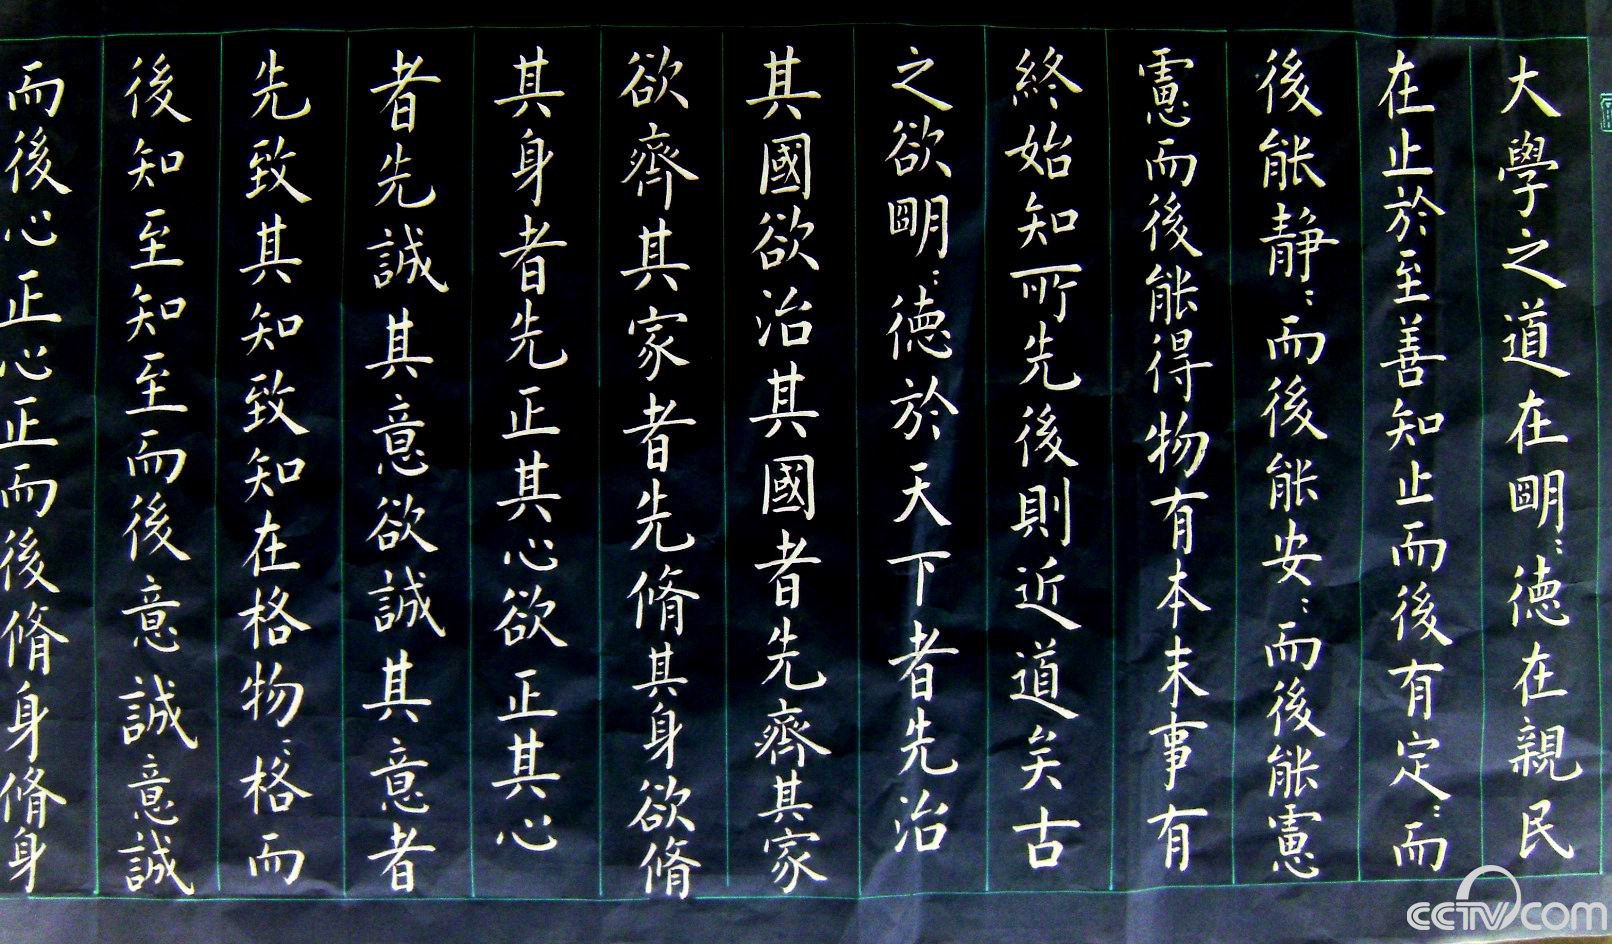 大學之道在朙:德在親民
在止於至善知止而後有定:而
後能靜:而後能安:而後能慮
慮而後能得物有本末事有
終始知所先後則近道矣古
之欲朙:德於天下者先治
其國欲治其國者先齊其家
欲齊其家者先脩其身欲脩
其身者先正其心欲正其心
者先誠其意欲誠其意者
先致其知致知在格物:格而
後知至知至而後意誠意誠
而後心正心正而後脩身脩身
CCTV.com